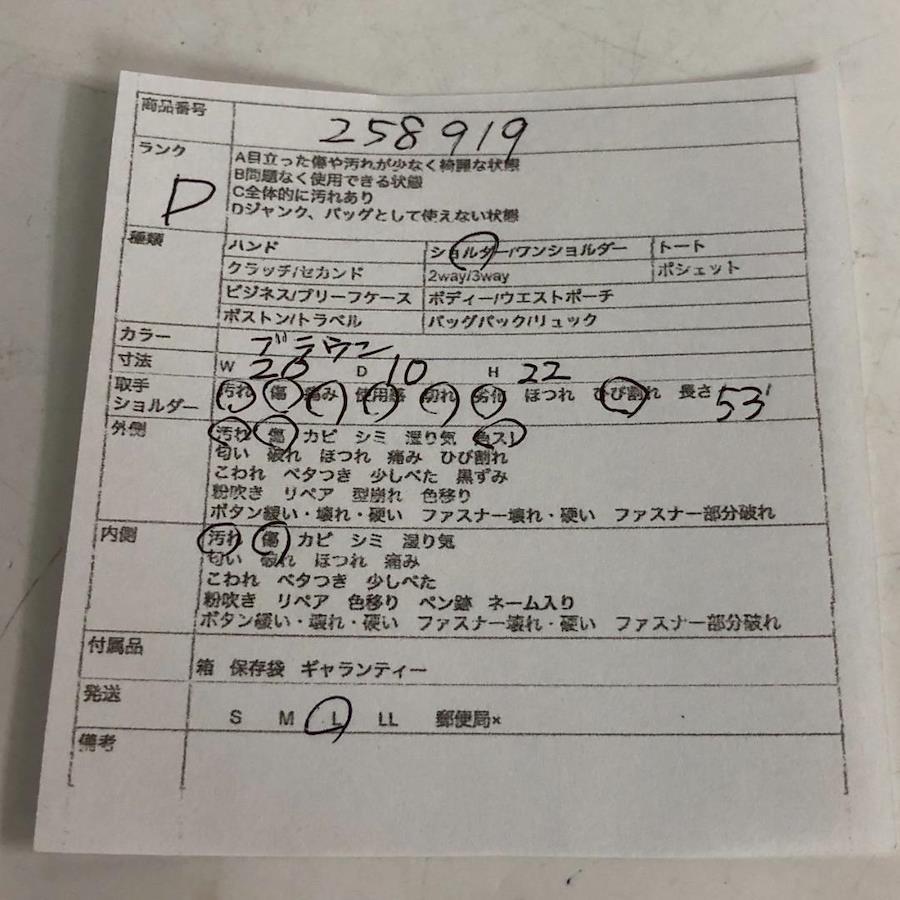 商品番号 258919
ランク D
A目立った傷や汚れが少なく綺麗な状態
B問題なく使用できる状態
C全体的に汚れあり
Dジャンク、バッグとして使えない状態
種類 ハンド ショルダー/ワンショルダー トート
クラッチ/セカンド 2way/3way ポシェット
ビジネス/ブリーフケース ボディー/ウエストポーチ
ボストン/トラベル バッグパック/リュック
カラー ブラウン
寸法 W 26 D 10 H 22
取手 汚れ 傷 痛み 使用感 切れ 劣化 ほつれ ひび割れ 長さ 53
ショルダー
外側 汚れ 傷 カビ シミ 湿り気 色スレ
匂い 破れ ほつれ 痛み ひび割れ
こわれ ベタつき 少しべた 黒ずみ
粉吹き リペア 型崩れ 色移り
ボタン緩い・壊れ・硬い ファスナー壊れ・硬い ファスナー部分破れ
内側 汚れ 傷 カビ シミ 湿り気
匂い 破れ ほつれ 痛み
こわれ ベタつき 少しべた
粉吹き リペア 色移り ペン跡 ネーム入り
ボタン緩い・壊れ・硬い ファスナー壊れ・硬い ファスナー部分破れ
付属品 箱 保存袋 ギャランティー
発送 S M L LL 郵便局×
備考